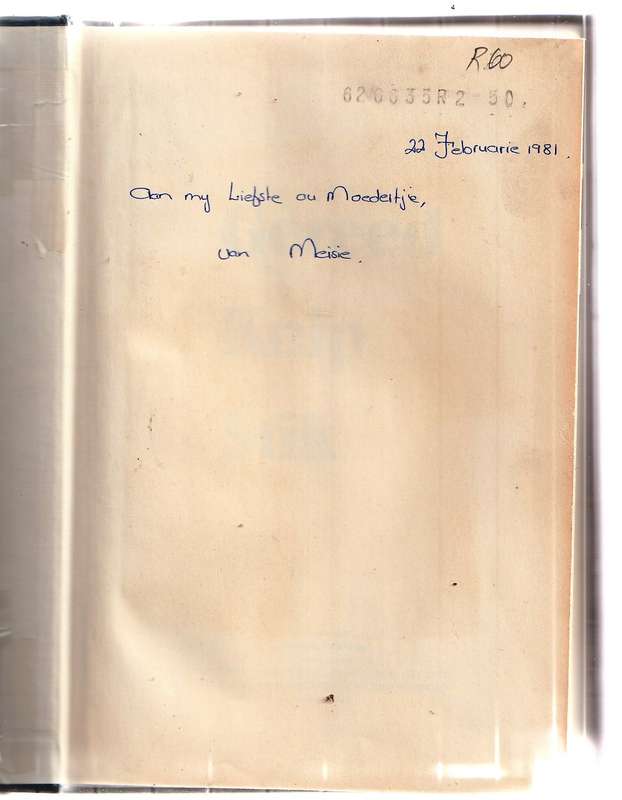 R60
626635R2-50.
22 Februarie 1981.
Aan my Liefste ou Moedertjie,
van Meisie.